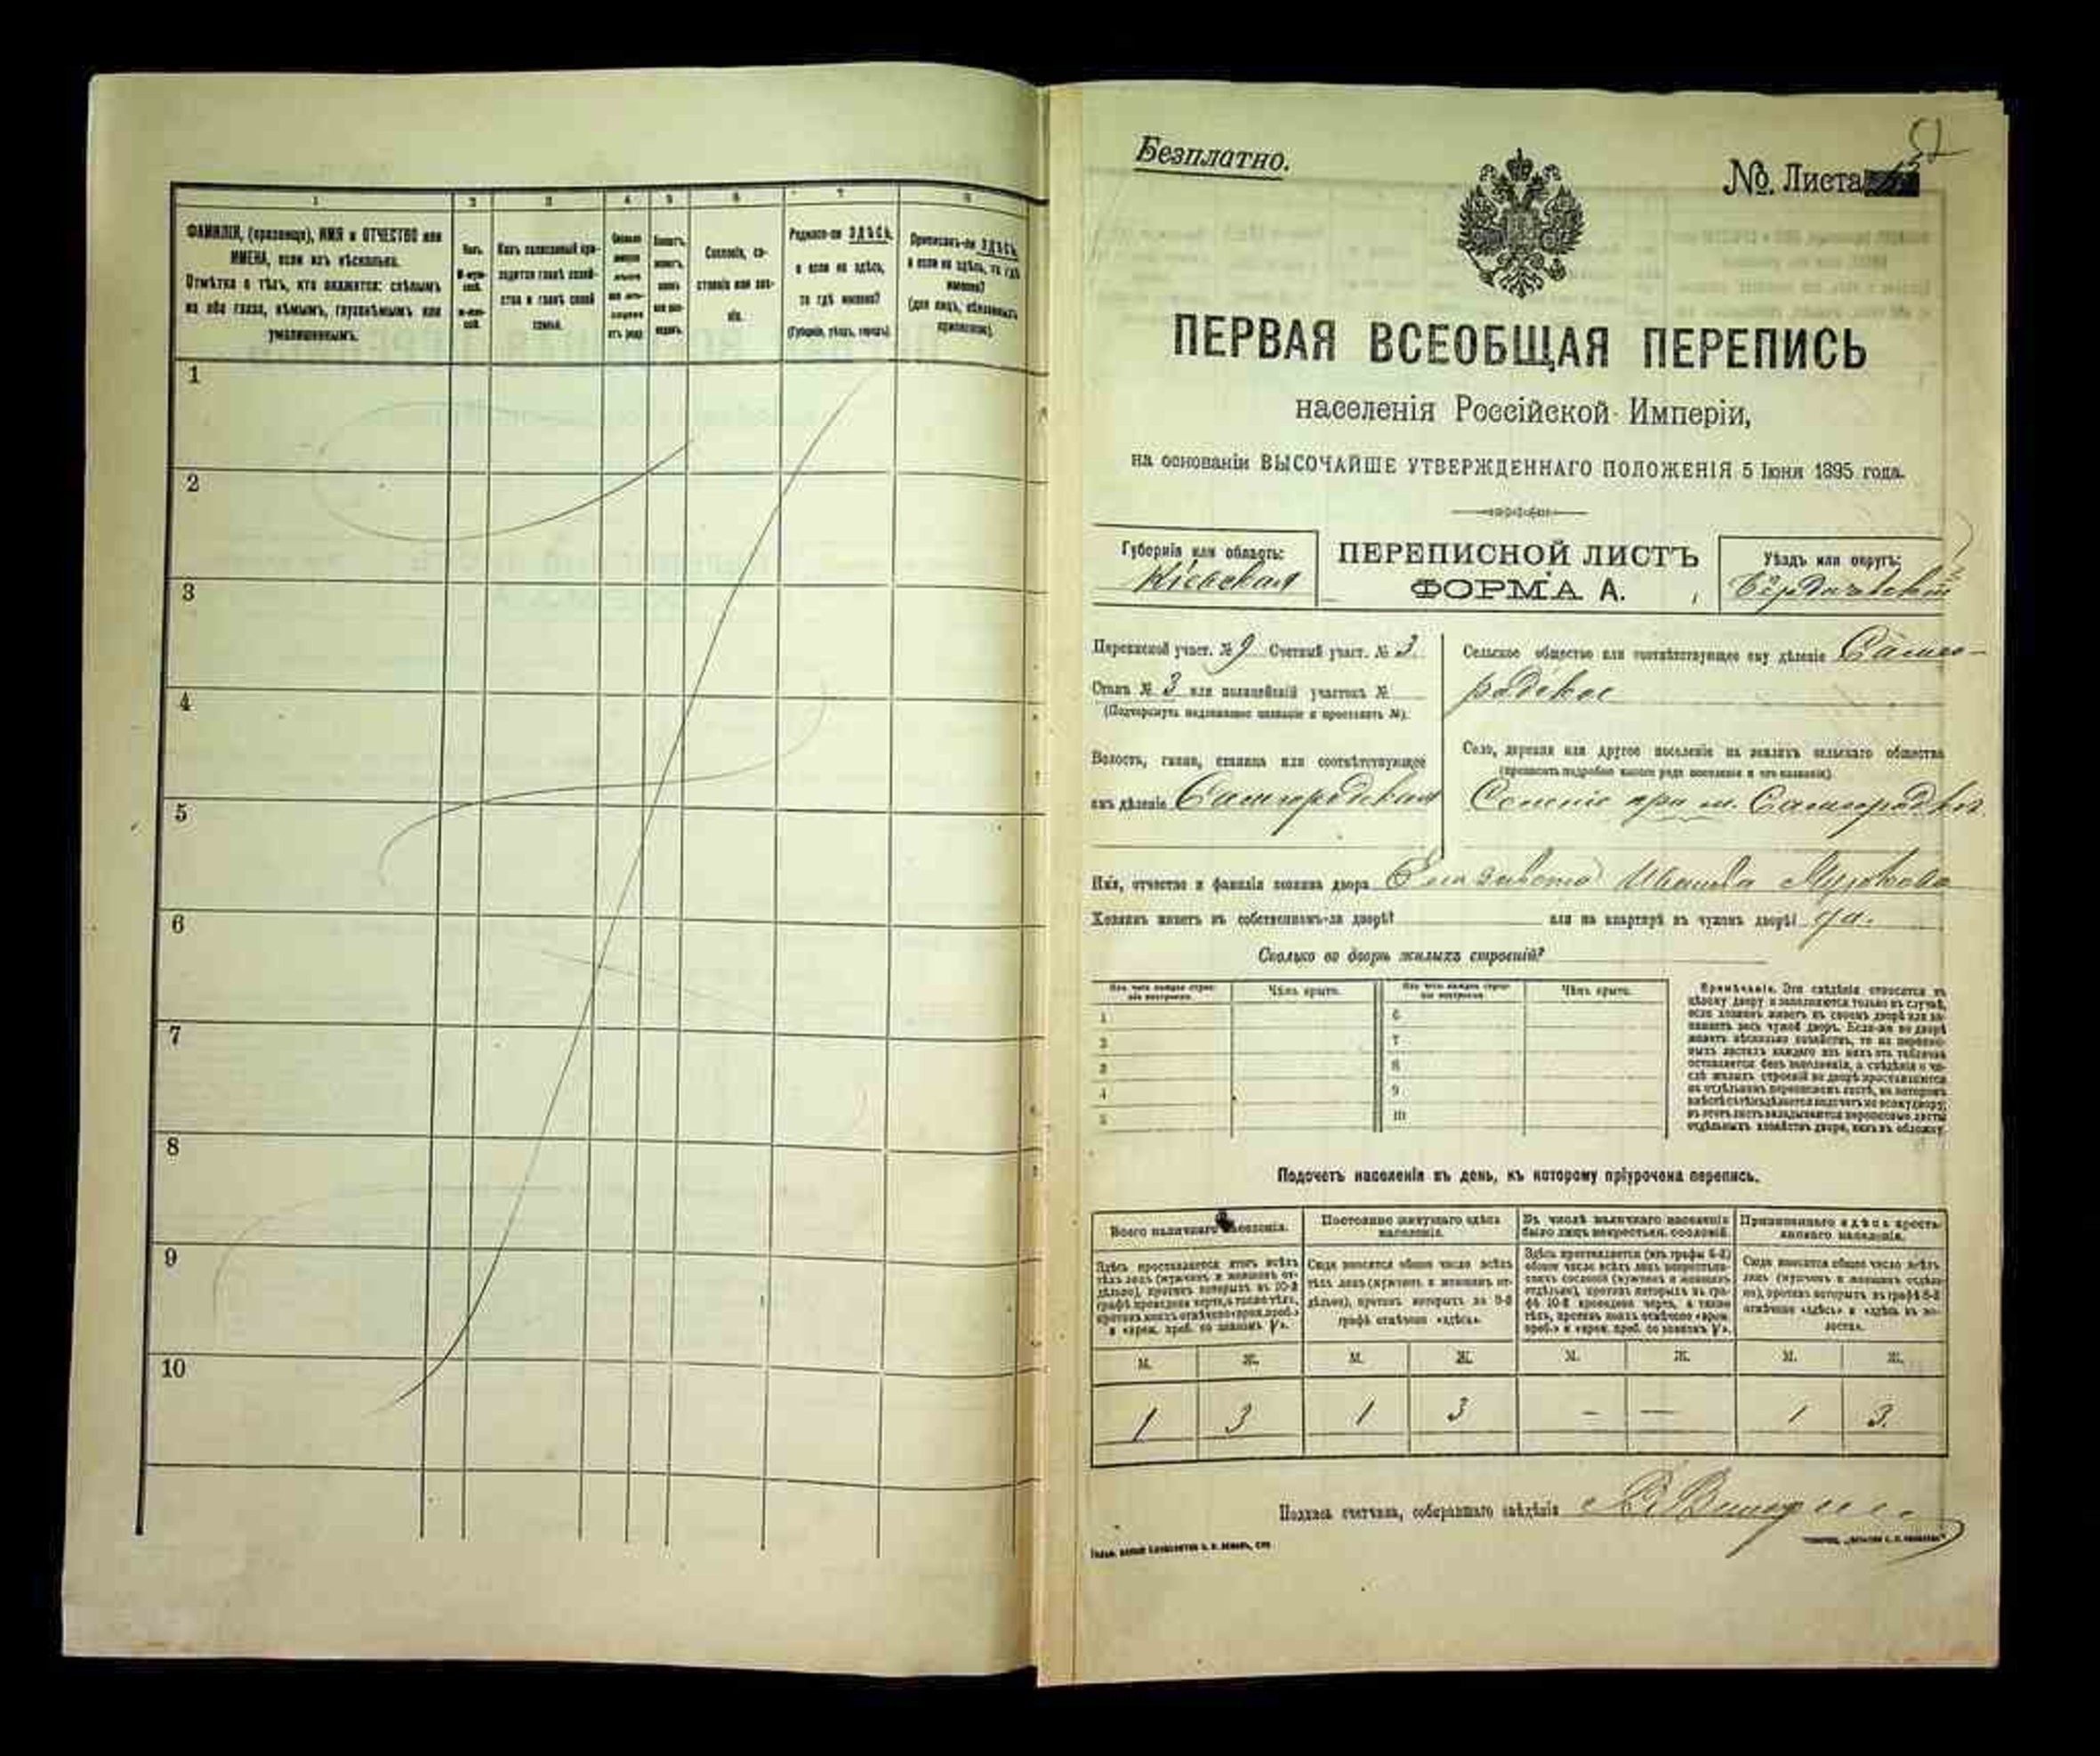 1
2
3
4
5
6
7
8
ФАМИЛІЯ, (прозвище), ИМЯ и ОТЧЕСТВО или
ИМЕНА, если ихъ нѣсколько.
Отмѣтка о тѣхъ, кто окажется: слѣпымъ
на оба глаза, нѣмымъ, глухонѣмымъ или
умалишеннымъ.
Полъ.
Какъ записанный при-
ходится главѣ хозяй-
ства и главѣ своей
семьи.
Сословіе, со-
стояніе или зва-
ніе.
Родился-ли ЗДѢСЬ,
а если не здѣсь,
то гдѣ именно?
(Губернія, уѣздъ, городъ).
Приписанъ-ли ЗДѢСЬ,
а если не здѣсь, то гдѣ
именно?
(для лицъ, обязанныхъ
припиской).
1
2
3
4
5
6
7
8
9
10
Безплатно.
№. Листа
ПЕРВАЯ ВСЕОБЩАЯ ПЕРЕПИСЬ
населенія Россійской Имперіи,
на основаніи ВЫСОЧАЙШЕ УТВЕРЖДЕННАГО ПОЛОЖЕНІЯ 5 Іюня 1895 года.
Губернія или область:
Кіевская
ПЕРЕПИСНОЙ ЛИСТЪ
ФОРМА А.
Уѣздъ или округъ:
Бердичевскій
Переписной участ. № 9 Счетный участ. № 3
Станъ № 3 или полицейскій участокъ №
(Подчеркнуть надлежащее названіе и проставить №).
Волость, гмина, станица или соотвѣтствующее
имъ дѣленіе Самгородская
Сельское общество или соотвѣтствующее ему дѣленіе Самго-
родское
Село, деревня или другое поселеніе на земляхъ сельскаго общества
(прописать подробно какого рода поселеніе и его названіе).
Селеніе при м. Самгородкѣ
Имя, отчество и фамилія хозяина двора Елизавета Иванова
Хозяинъ живетъ въ собственномъ-ли дворѣ? или на квартирѣ въ чужомъ дворѣ? да.
Сколько во дворѣ жилыхъ строеній?
Изъ чего каждое строе-
ніе построено.
Чѣмъ крыто.
Изъ чего каждое строе-
ніе построено.
Чѣмъ крыто.
1
2
3
4
5
6
7
8
9
10
Примѣчаніе. Эти свѣдѣнія относятся къ
цѣлому двору и заполняются только въ случаѣ,
если хозяинъ живетъ въ своемъ дворѣ или за-
нимаетъ весь чужой дворъ. Если-же во дворѣ
живетъ нѣсколько хозяйствъ, то на перепис-
ныхъ листахъ каждаго изъ нихъ эта табличка
оставляется безъ заполненія, а свѣдѣнія о чи-
слѣ жилыхъ строеній во дворѣ проставляются
на отдѣльномъ переписномъ листѣ, на которомъ
Подсчетъ населенія въ день, къ которому пріурочена перепись.
Всего наличнаго населенія.
Постоянно живущаго здѣсь
населенія.
Въ числѣ наличнаго населенія
было лицъ некрестьян. сословій.
Приписаннаго здѣсь кресть-
янскаго населенія.
Здѣсь проставляется итогъ всѣхъ
тѣхъ лицъ (мужчинъ и женщинъ от-
дѣльно), противъ которыхъ въ 10-й
графѣ проведена черта, а также тѣхъ,
противъ коихъ отмѣчено «врем. преб.»
Сюда вносится общее число всѣхъ
тѣхъ лицъ (мужчинъ и женщинъ от-
дѣльно), противъ которыхъ въ 9-й
графѣ отмѣчено «здѣсь».
Здѣсь проставляется (изъ графы 6-й)
общее число всѣхъ лицъ некрестьян-
скихъ сословій (мужчинъ и женщинъ
отдѣльно), противъ которыхъ въ гра-
фѣ 10-й проведена черта, а также
тѣхъ, противъ коихъ отмѣчено «врем.
Сюда вносится общее число всѣхъ
лицъ (мужчинъ и женщинъ отдѣль-
но), противъ которыхъ въ графѣ 8-й
отмѣчено «здѣсь» и «здѣсь въ во-
лости».
М. Ж. М. Ж. М. Ж. М. Ж.
1 3 1 3 — — 1 3.
Подпись счетчика, собиравшаго свѣдѣнія